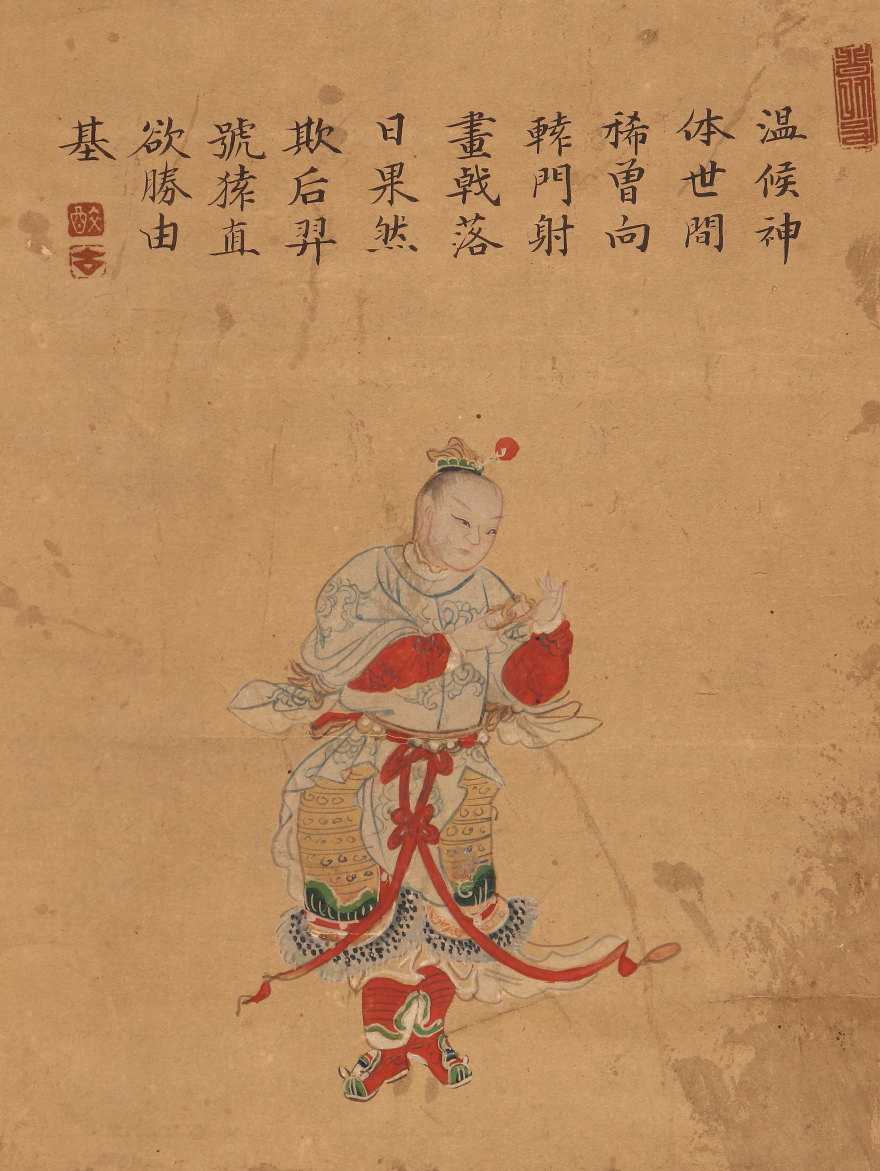 温候神
体世間
稀曽向
轅門射
畫戟落
日果然
欺后羿
號猿直
欲勝由
基